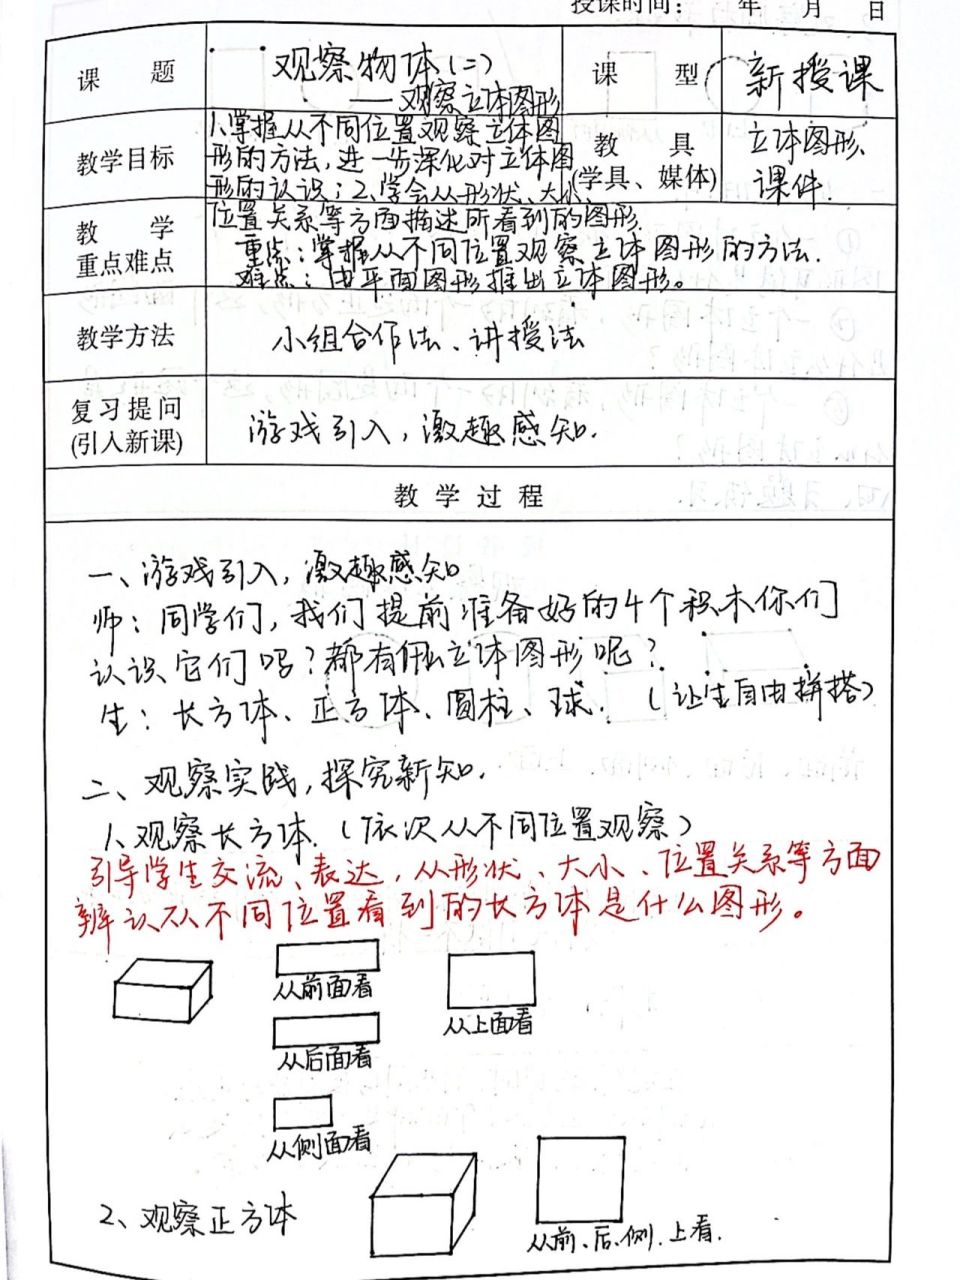 授课时间： 年 月 日
课 题
观察物体(二)
——观察立体图形
课 型
新授课
教学目标
1、掌握从不同位置观察立体图
形的方法，进一步深化对立体图
形的认识；2、学会从形状、大小、
位置关系等方面描述所看到的图形.
教 具
(学具、媒体)
立体图形、
课件.
教 学
重点难点
重点：掌握从不同位置观察立体图形的方法.
难点：由平面图形推出立体图形。
教学方法
小组合作法、讲授法
复习提问
(引入新课)
游戏引入，激趣感知.
教 学 过 程
一、游戏引入，激趣感知
师：同学们，我们提前准备好的4个积木你们
认识它们吗？都有什么立体图形呢？
生：长方体、正方体、圆柱、球.（让生自由拼搭）
二、观察实践，探究新知.
1、观察长方体.（依次从不同位置观察）
引导学生交流、表达，从形状、大小、位置关系等方面
辨认从不同位置看到的长方体是什么图形。
从前面看
从上面看
从后面看
从侧面看
2、观察正方体
从前、后、侧、上看.